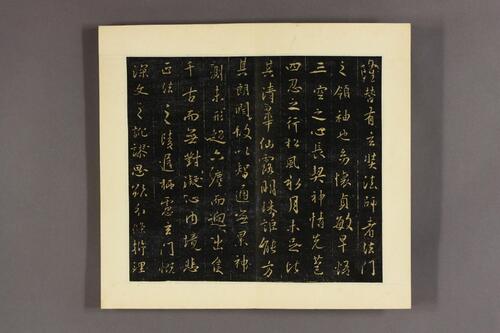 隆替有玄奘法師者法門
之領袖也幼懷貞敏早悟
三空之心長契神情先苞
四忍之行松風水月未足比
其清華仙露明珠詎能方
其朗潤故以智通無累神
測未形超六塵而迥出隻
千古而無對凝心內境悲
正法之陵遲栖慮玄門慨
深文之訛謬思欲分條析理